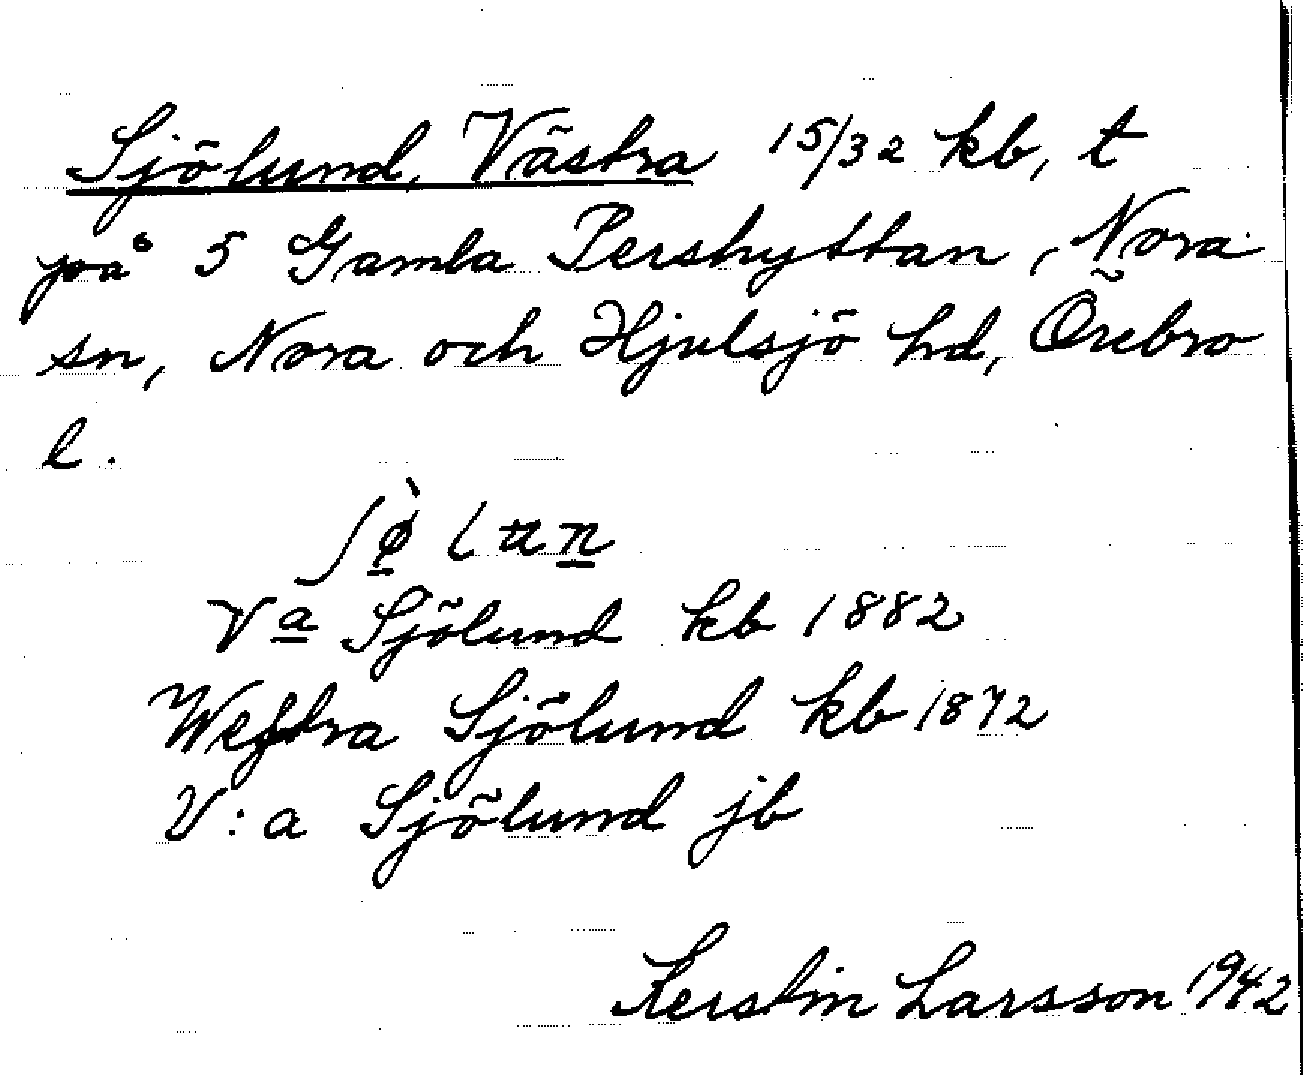 Sjölund, Västra 15/32 kb, t
på 5 Gamla Pershyttan, Nora
sn, Nora och Hjulsjö hd, Örebro
l.
Va Sjölund kb 1882
Westra Sjölund kb 1872
V:a Sjölund jb
Kerstin Larsson 1942